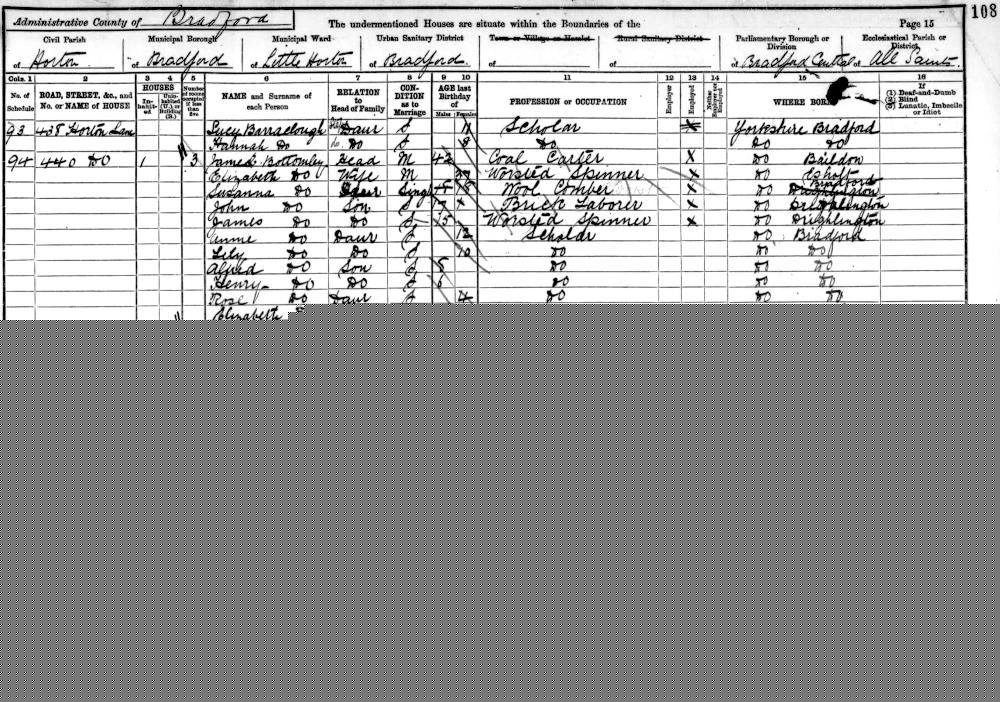 108
Administrative County of Bradford The undermentioned Houses are situate within the Boundaries of the Page 15
Civil Parish Municipal Borough Municipal Ward Urban Sanitary District Town or Village or Hamlet Rural Sanitary District Parliamentary Borough or Division Ecclesiastical Parish or District
of Horton of Bradford of Little Horton of Bradford. of of of Bradford Central of All Saints.
Cols. 1 2 3 4 5 6 7 8 9 10 11 12 13 14 15 16
No. of Schedule ROAD, STREET, &c., and No. or NAME of HOUSE HOUSES Inhabited Uninhabited (U.) or Building (B.) Number of rooms occupied if less than five NAME and Surname of each Person RELATION to Head of Family CONDITION as to Marriage AGE last Birthday of Males Females PROFESSION or OCCUPATION Employer Employed Neither Employer nor Employed WHERE BORN If (1) Deaf-and-Dumb (2) Blind (3) Lunatic, Imbecile or Idiot
93 438 Horton Lane Lucy Barraclough Daur S 11 Scholar X Yorkshire Bradford
Hannah Do Do S 8 Do Do Do
94 440 Do 1 3 James Bottomley Head M 42 Coal Carter X Do Baildon
Elizabeth Do Wife M Worsted Spinner X Do Esholt
Susanna Do Daur Single 18 Wool Comber X Do Bradford
John Do Son S 17 Brick Laborer X Do
James Do Do S 15 Worsted Spinner X Do Drighlington
Annie Do Daur S 12 Scholar Do Bradford
Lily Do Do S 10 Do Do Do
Alfred Do Son S 8 Do Do Do
Henry Do Do S 6 Do Do Do
Rose Do Daur S 4 Do Do Do
Elizabeth